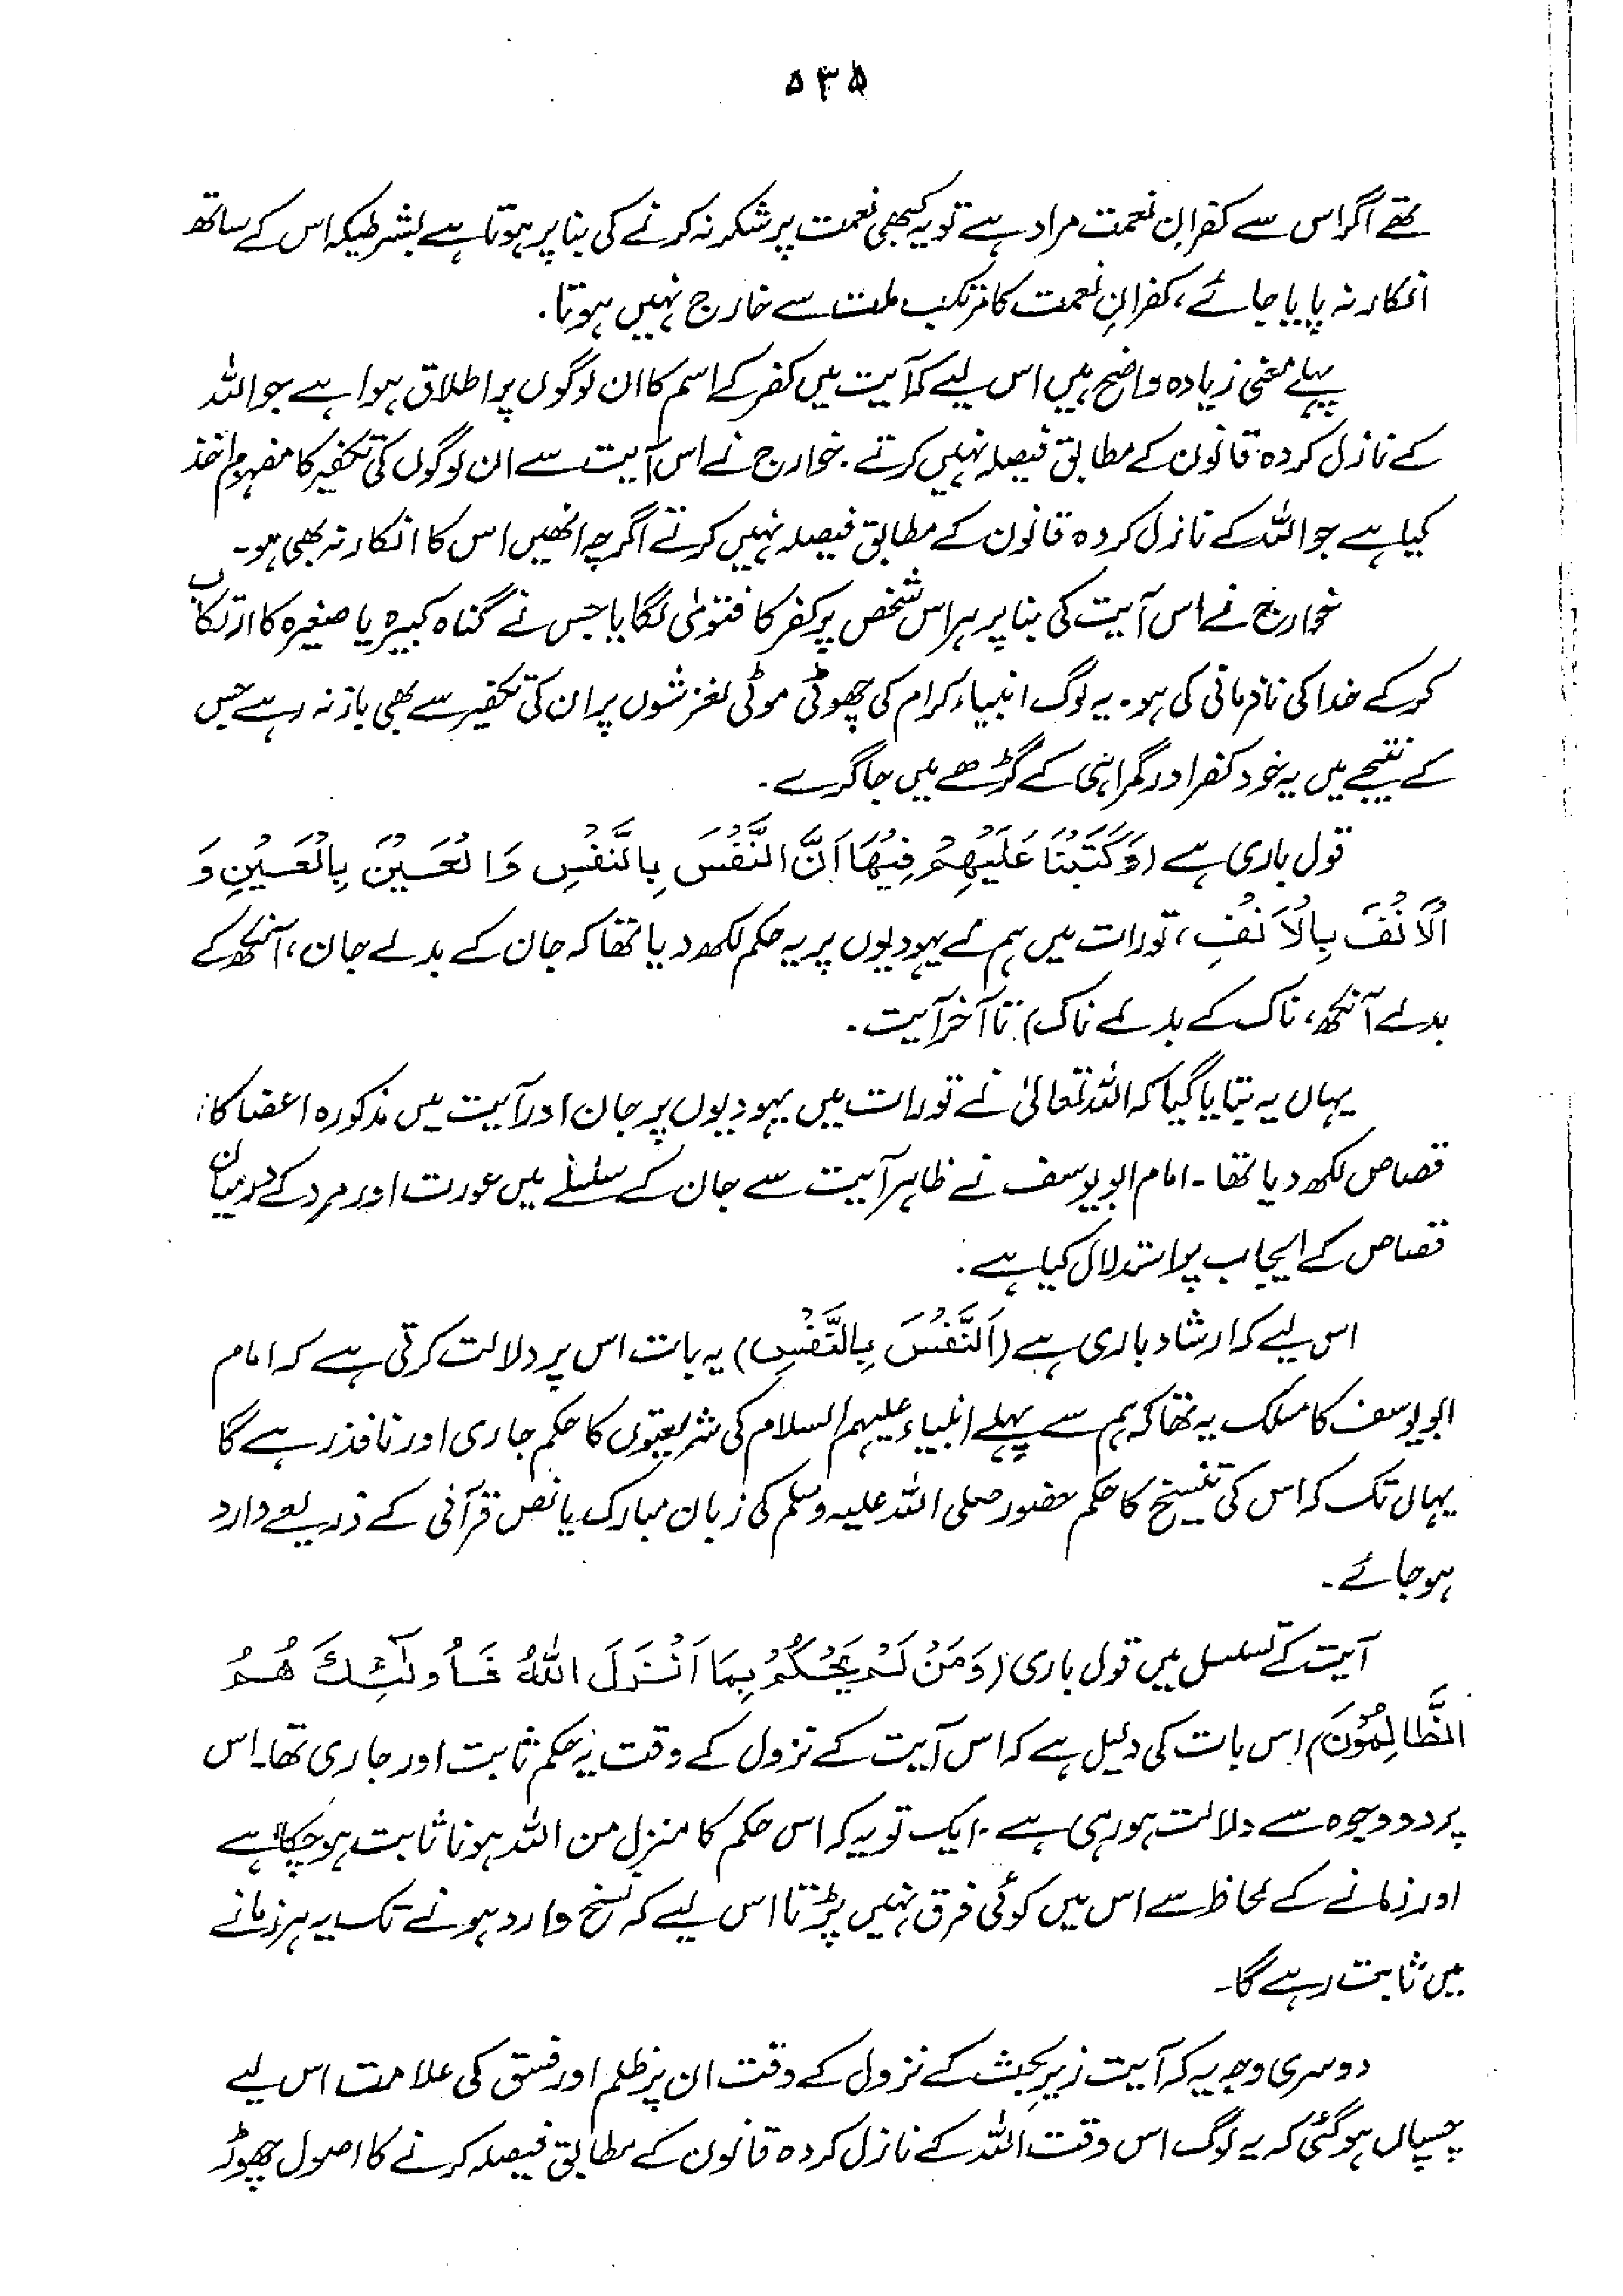 ۵۳۵
تھے اگر اس سے کفرانِ نعمت مراد ہے تو یہ کبھی نعمت پر شکر نہ کرنے کی بنا پر ہوتا ہے بشرطیکہ اس کے ساتھ
انکار نہ پایا جائے، کفرانِ نعمت کا مرتکب ملت سے خارج نہیں ہوتا۔
پہلے معنی زیادہ واضح ہیں اس لیے کہ آیت میں کفر کے اسم کا ان لوگوں پر اطلاق ہوا ہے جو اللہ
کے نازل کردہ قانون کے مطابق فیصلہ نہیں کرتے۔ خوارج نے اس آیت سے ان لوگوں کی تکفیر کا مفہوم اخذ
کیا ہے جو اللہ کے نازل کردہ قانون کے مطابق فیصلہ نہیں کرتے اگرچہ انھیں اس کا انکار نہ بھی ہو۔
خوارج نے اس آیت کی بنا پر ہر اس شخص پر کفر کا فتویٰ لگایا جس نے گناہ کبیرہ یا صغیرہ کا ارتکاب
کر کے خدا کی نافرمانی کی ہو۔ یہ لوگ انبیاء کرام کی چھوٹی موٹی لغزشوں پر ان کی تکفیر سے بھی باز نہ رہے جس
کے نتیجے میں یہ خود کفر اور گمراہی کے گڑھے میں جا گرے۔
قول باری ہے (وَكَتَبْنَا عَلَيْهِمْ فِيْهَا اَنَّ النَّفْسَ بِالنَّفْسِ وَالْعَيْنَ بِالْعَيْنِ وَ
الْاَنْفَ بِالْاَنْفِ، تورات میں ہم نے یہودیوں پر یہ حکم لکھ دیا تھا کہ جان کے بدلے جان، آنکھ کے
بدلے آنکھ، ناک کے بدلے ناک) تا آخر آیت۔
یہاں یہ بتایا گیا کہ اللہ تعالیٰ نے تورات میں یہودیوں پر جان اور آیت میں مذکورہ اعضا کا
قصاص لکھ دیا تھا۔ امام ابو یوسف نے ظاہر آیت سے جان کے سلسلے میں عورت اور مرد کے درمیان
قصاص کے ایجاب پر استدلال کیا ہے۔
اس لیے کہ ارشاد باری ہے (اَلنَّفْسَ بِالنَّفْسِ) یہ بات اس پر دلالت کرتی ہے کہ امام
ابو یوسف کا مسلک یہ تھا کہ ہم سے پہلے انبیاء علیہم السلام کی شریعتوں کا حکم جاری اور نافذ رہے گا
یہاں تک کہ اس کی تنسیخ کا حکم حضور صلی اللہ علیہ وسلم کی زبان مبارک یا نص قرآنی کے ذریعے وارد
ہو جائے۔
آیت کے تسلسل میں قول باری (وَمَنْ لَمْ يَحْكُمْ بِمَا اَنْزَلَ اللّٰهُ فَاُولٰٓئِكَ هُمُ
الظَّالِمُوْنَ) اس بات کی دلیل ہے کہ اس آیت کے نزول کے وقت یہ حکم ثابت اور جاری تھا۔ اس
پر دو وجوہ سے دلالت ہو رہی ہے۔ ایک تو یہ کہ اس حکم کا منزل من اللہ ہونا ثابت ہو چکا ہے
اور زمانے کے لحاظ سے اس میں کوئی فرق نہیں پڑتا اس لیے کہ نسخ وارد ہونے تک یہ ہر زمانے
میں ثابت رہے گا۔
دوسری وجہ یہ کہ آیت زیرِ بحث کے نزول کے وقت ان پر ظلم اور فسق کی علامت اس لیے
چسپاں ہو گئی کہ یہ لوگ اس وقت اللہ کے نازل کردہ قانون کے مطابق فیصلہ کرنے کا اصول چھوڑ